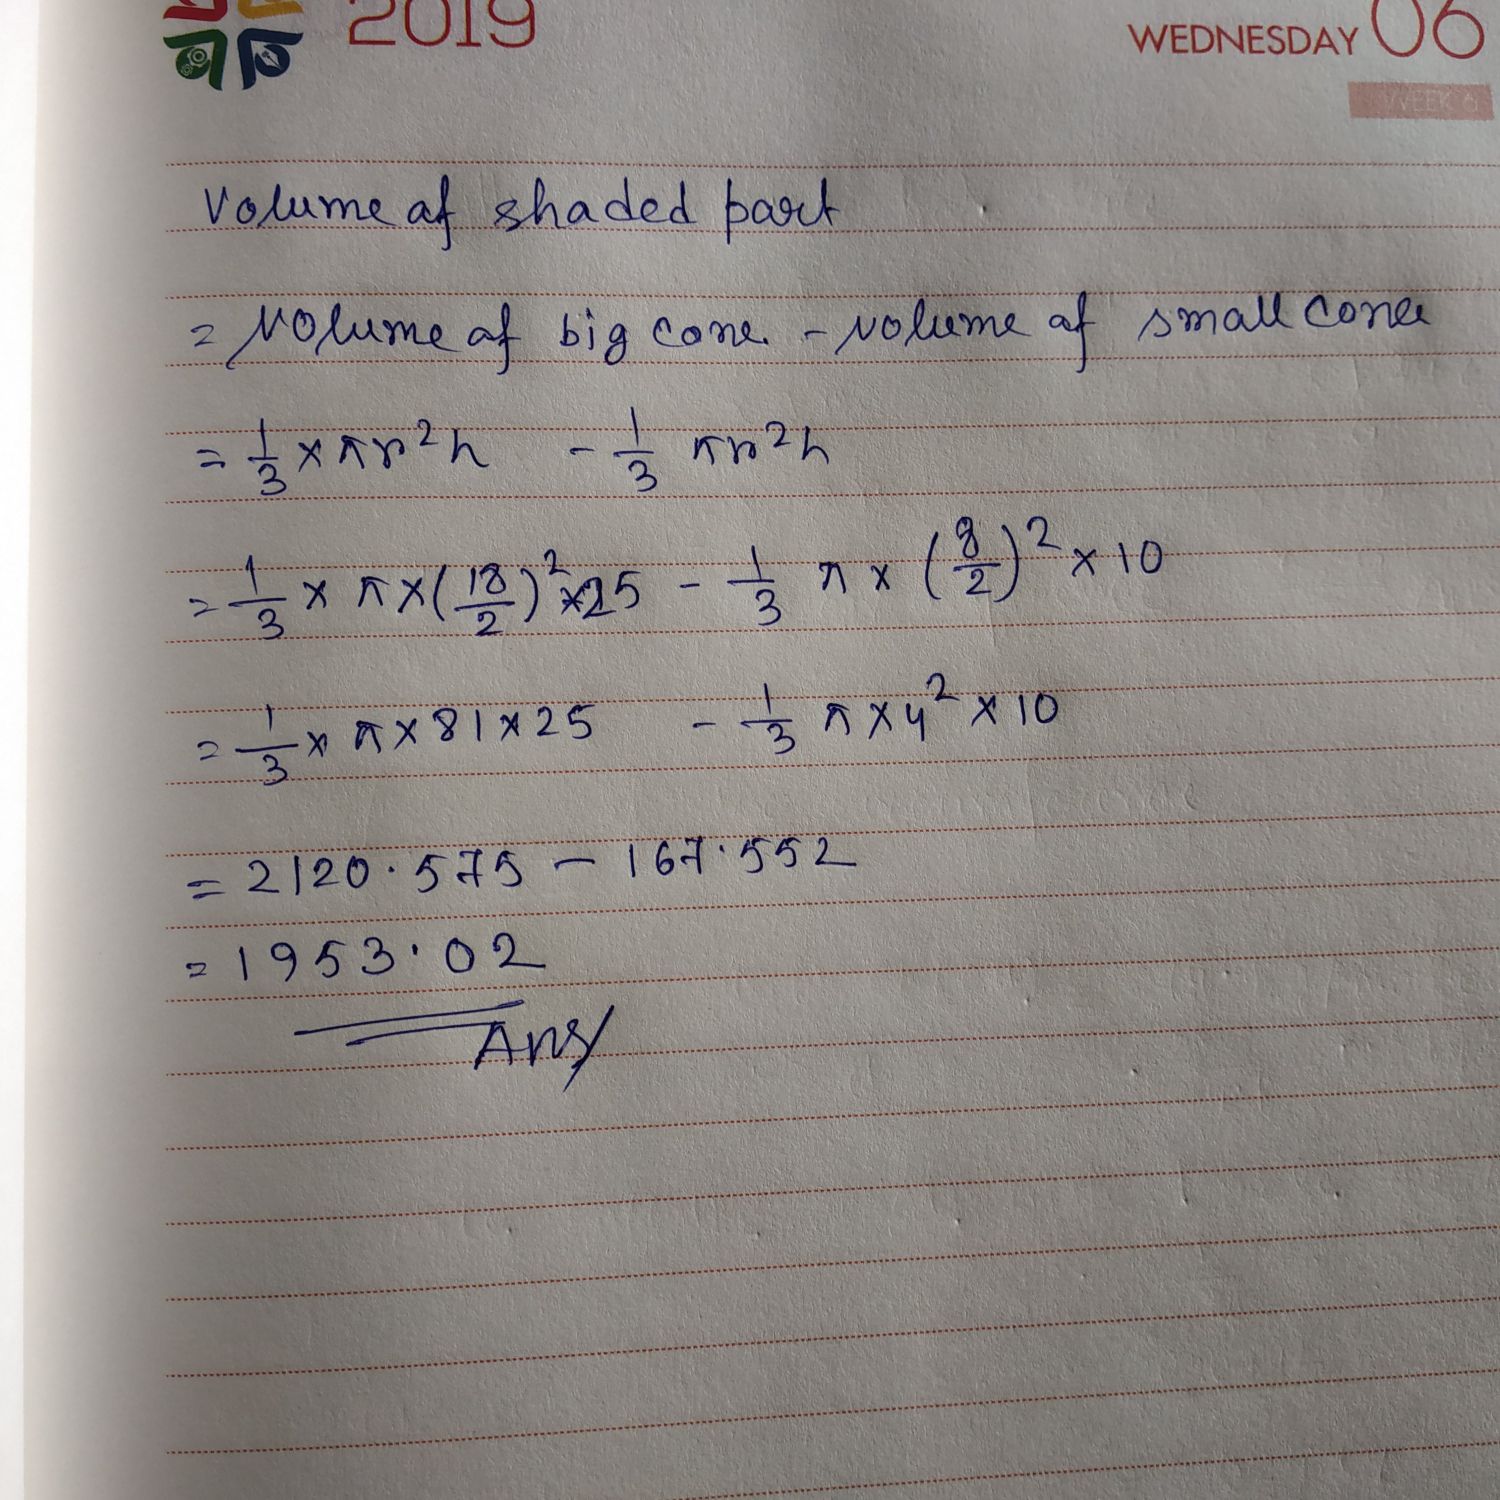 2019
WEDNESDAY 06
WEEK 6
Volume of shaded part
= Volume of big cone - volume of small cone
= 1/3 × πr²h - 1/3 πr²h
= 1/3 × π × (18/2)² × 25 - 1/3 π × (8/2)² × 10
= 1/3 × π × 81 × 25 - 1/3 π × 4² × 10
= 2120.575 - 167.552
= 1953.02
Ans